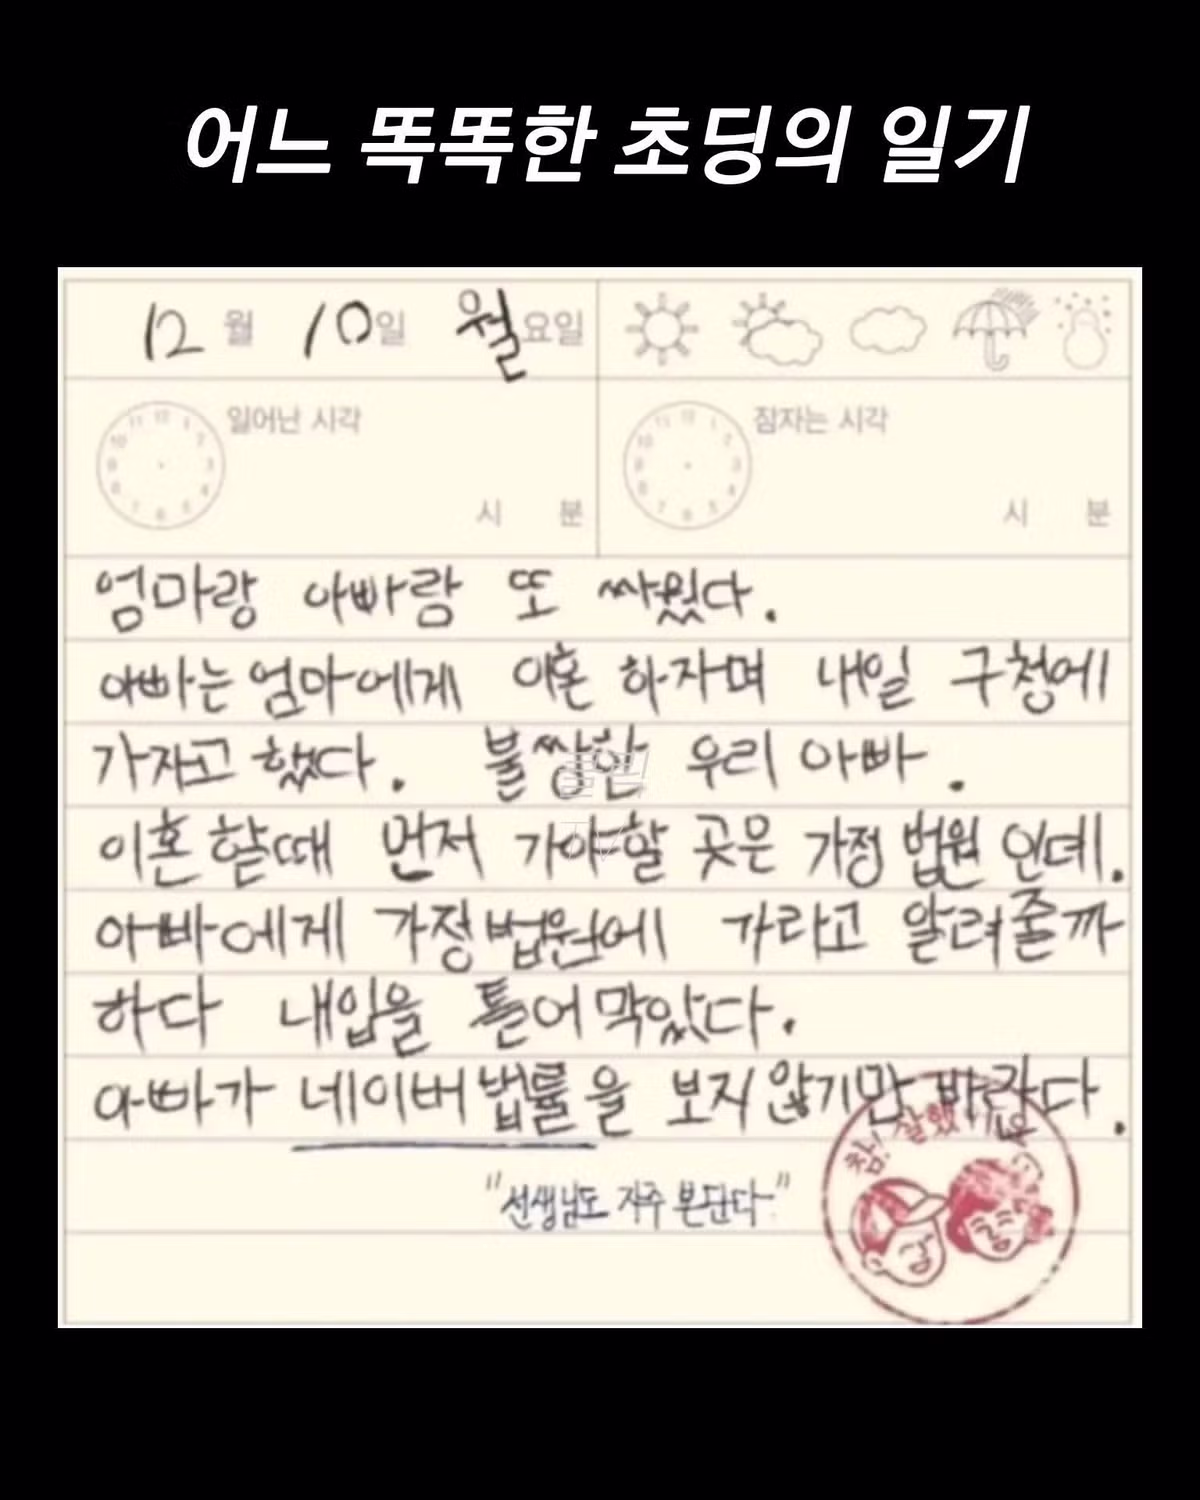 어느 똑똑한 초딩의 일기
12 월 10일 월요일
일어난 시각
시 분
잠자는 시각
시 분
엄마랑 아빠랑 또 싸웠다.
아빠는 엄마에게 이혼 하자며 내일 구청에
가자고 했다. 불쌍한 우리 아빠.
이혼 할때 먼저 가야할 곳은 가정 법원 인데.
아빠에게 가정법원에 가라고 알려줄까
하다 내입을 틀어막았다.
아빠가 네이버 법률을 보지 않기만 바란다.
"선생님도 자주 본단다"
참! 잘했